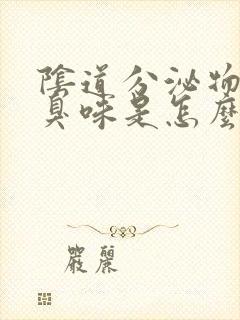 陰道分泌物
臭味是怎麼
嚴麗